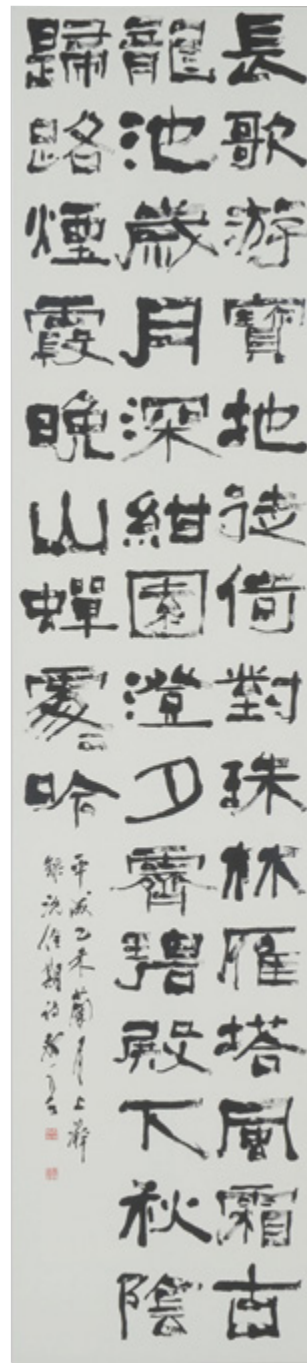 長歌游寶地徙倚對珠林雁塔風霜古
龍池歲月深紺園澄夕霽碧殿下秋陰
歸路煙霞晚山蟬處々吟
平成乙未蘭月上澣
錄沈佺期詩